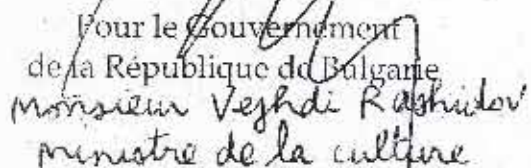 Pour le Gouvernement
de la République de Bulgarie
monsieur Vezhdi Rashidov
ministre de la culture